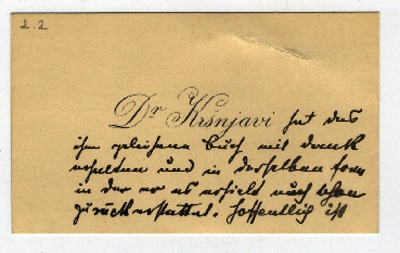 2.2
Dr Kršnjavi hat das
ihm geliehene Buch mit Dank
erhalten und in derselben Form
in der er es erhielt nach
zurückerstattet. Hoffentlich ist